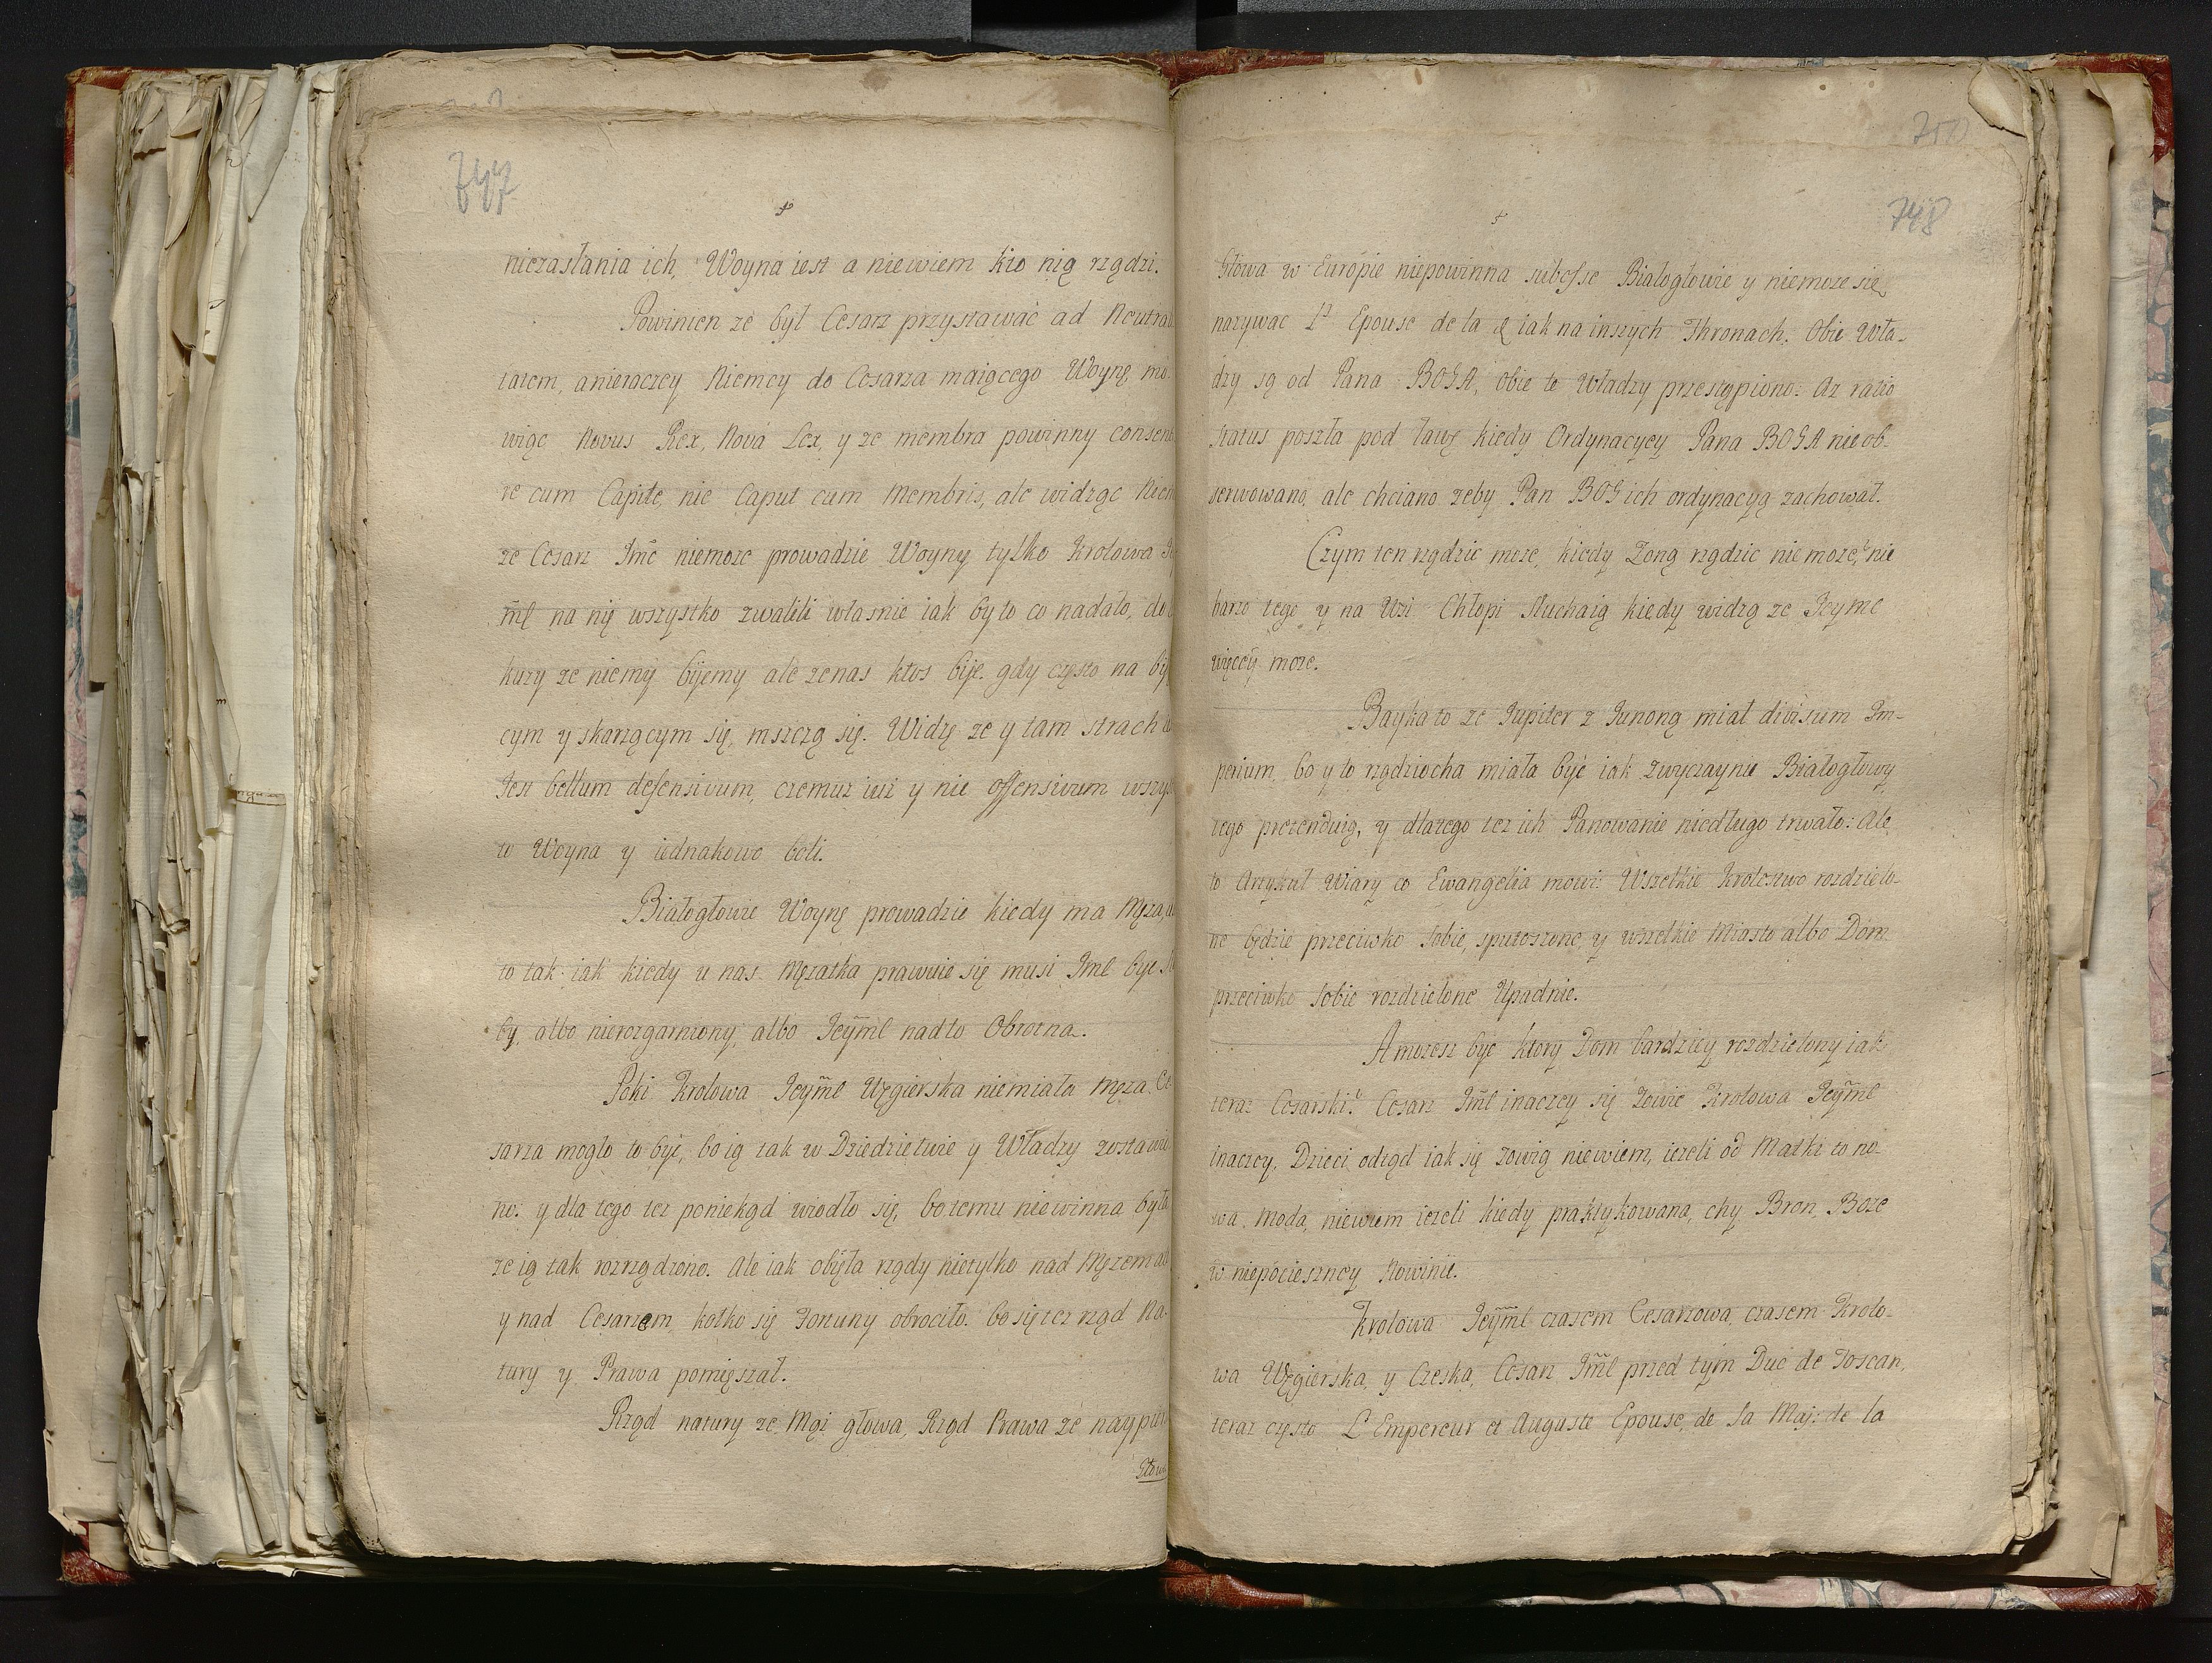 747
niezasłania ich, Woyna iest a niewiem kto nią rządzi.
Powinien ze był Cesarz przystawać ad Neutral
tatem, anieraczey Niemcy do Cesarza maiącego Woynę mo-
wiąc Novus Rex, Nova Lex, y ze membra powinny consenti
re cum Capite, nie Caput cum Membris, ale widząc Niem
ze Cesarz Jmć niemoze prowadzic Woyny tylko Krolowa Je
mć na nię wszystko zwalili własnie iak by to co nadało, do
kuzy ze niemy bijemy ale zenas ktos bije. gdy często na bij
cym y skarzącym się, mszczą się. Widzę ze y tam strach
Jest bellum defensivum, czemuz iuz y nie offensivum wszys
to Woyna y iednakowo boli.
Białogłowie Woynę prowadzic kiedy ma Męza,
to tak iak kiedy u nas Męzatka prawuie się musi Jmć byc Sł
by, albo nierozgarniony, albo Jeymć nadto Obrotna.
Poki Krolowa Jeymć Węgierska niemiała Męza Ce
sarza mogło to być, bo ią tak w Dziedzictwie y Władzy zostawio
no: y dla tego tez poniekąd wiodło się, bo temu niewinna była
ze ią tak rozrządzono. Ale iak obięła rządy nietylko nad Męzem al
y nad Cesarzem, kołko się Fortuny obrociło. bo się tez rząd Na-
tury y Prawa pomięszał.
Rząd natury ze Mąz głowa, Rząd Prawa ze naypier
Głowa
750
748
Głowa w Europie niepowinna subesse Białogłowie y niemoze się
nazywac L' Epouse de la & iak na inszych Thronach. Obie Wła-
dzy są od Pana BOGA, obie te Władzy przestąpiono: Az ratio
status poszła pod ławę kiedy Ordynacyey Pana BOGA nie ob-
serwowano, ale chciano zeby Pan BOG ich ordynacyą zachował.
Czym ten rządzic moze, kiedy Zoną rządzic nie moze? nie
barzo tego y na Wsi Chłopi słuchaią kiedy widzą ze Jeymć
więcey moze.
Bayka to ze Jupiter z Junoną miał divisum Im-
perium, bo y to rządziocha miała być iak zwyczaynie Białogłowy
tego pretenduią, y dlatego tez ich Panowanie niedługo trwało: Ale
to Artykuł Wiary co Ewangelia mowi: Wszelkie Krolestwo rozdzielo-
ne będzie przeciwko sobie, spustoszone, y wszelkie Miasto albo Dom
przeciwko sobie rozdzielone Upadnie.
A mozesz byc ktory Dom bardziey rozdzielony iak
teraz Cesarski? Cesarz Jmć inaczey się Zowie Krolowa Jeymć
inaczey, Dzieci odtąd iak się zowią niewiem, iezeli od Matki to no-
wa Moda, niewiem iezeli kiedy praktykowana, chy Bron Boze
w niepocieszney Nowinie.
Krolowa Jeymć czasem Cesarzowa, czasem Krolo-
wa Węgierska, y Czeska, Cesarz Jmć przed tym Duc de Toscan,
teraz często L' Empereur et Auguste Epouse, de Sa Maj: de la